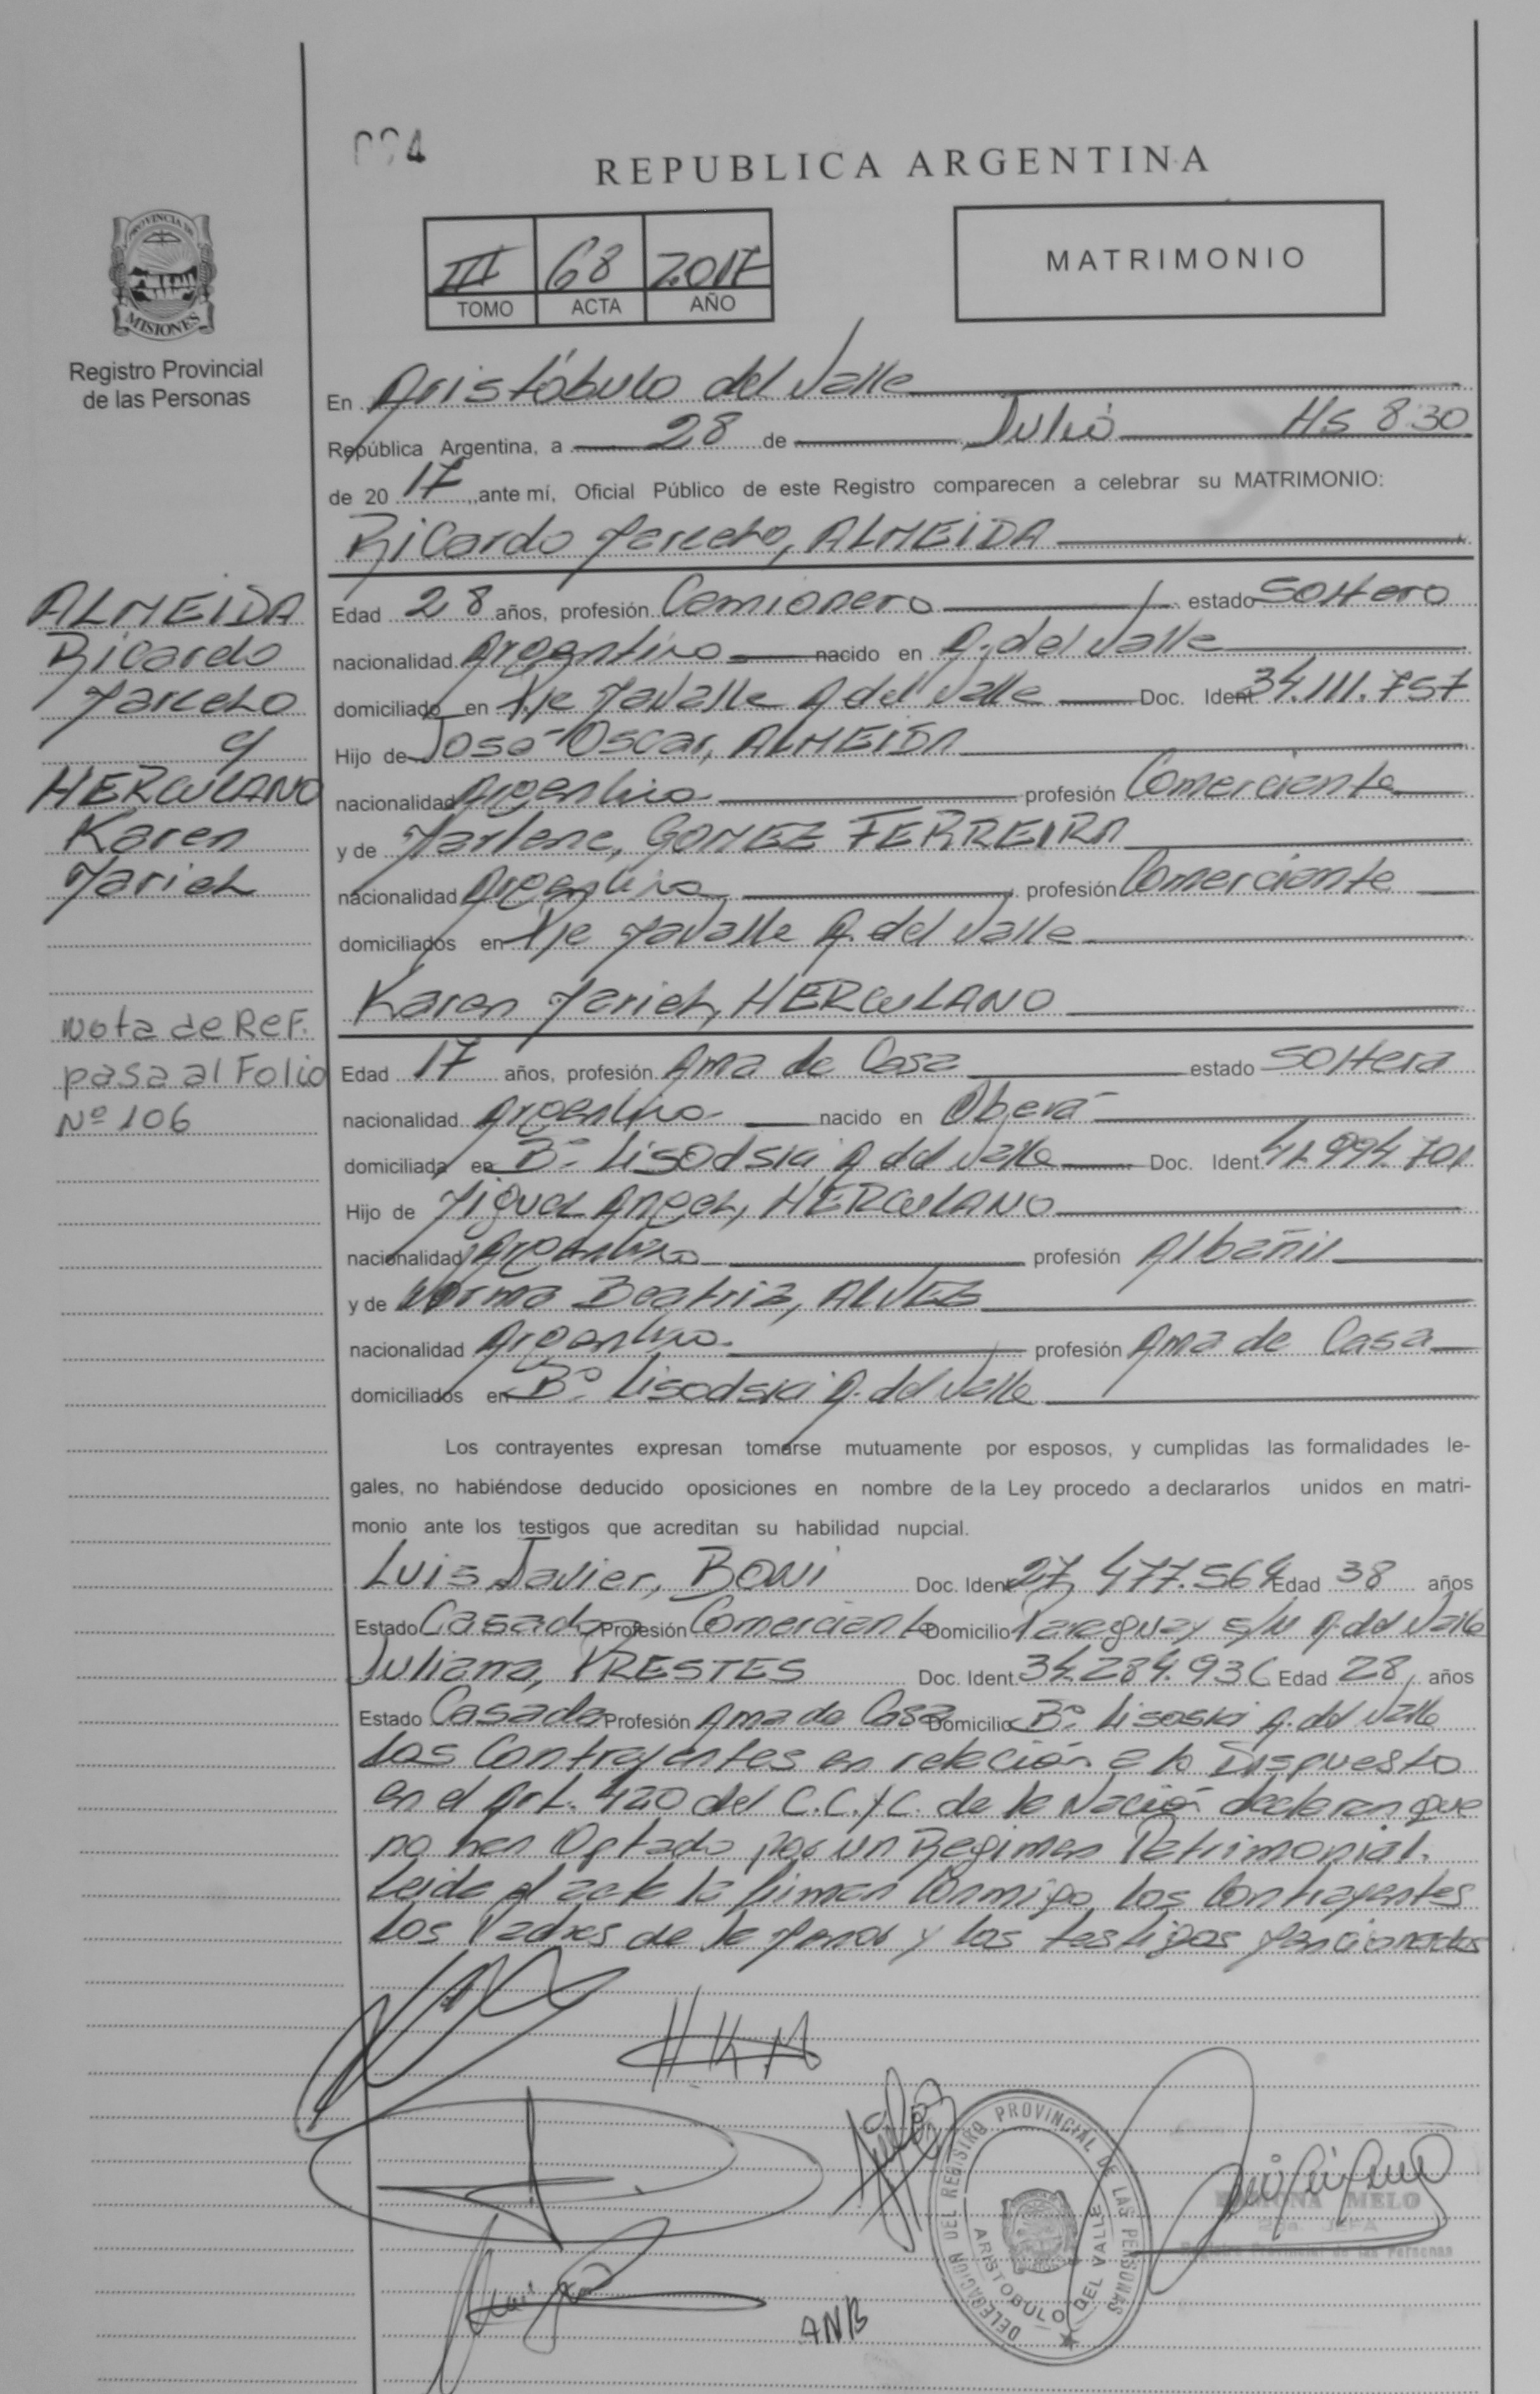 094
REPUBLICA ARGENTINA
III 68 2017
TOMO ACTA AÑO
MATRIMONIO
PROVINCIA DE
MISIONES
Registro Provincial
de las Personas
En Aristóbulo del Valle
República Argentina, a 28 de Julio Hs 8:30
de 2017, ante mí, Oficial Público de este Registro comparecen a celebrar su MATRIMONIO:
Ricardo Marcelo, ALMEIDA
ALMEIDA
Ricardo
Marcelo
y
HERCULANO
Karen
Mariel
Nota de Ref.
pasa al Folio
Nº 106
Edad 28 años, profesión Camionero estado Soltero
nacionalidad Argentino nacido en A. del Valle
domiciliado en Pje Lavalle A del Valle Doc. Ident. 34.111.757
Hijo de José Oscar, ALMEIDA
nacionalidad Argentino profesión Comerciante
y de Marlene, GOMEZ FERREIRA
nacionalidad Argentina profesión Comerciante
domiciliados en Pje Lavalle A. del Valle
Karen Mariel, HERCULANO
Edad 17 años, profesión Ama de Casa estado Soltera
nacionalidad Argentina nacido en Oberá
domiciliada en Bº Lisodski A del Valle Doc. Ident. 41.994.701
Hijo de Miguel Angel, HERCULANO
nacionalidad Argentino profesión Albañil
y de Norma Beatriz, ALVEZ
nacionalidad Argentina profesión Ama de Casa
domiciliados en Bº Lisodski A. del Valle
Los contrayentes expresan tomarse mutuamente por esposos, y cumplidas las formalidades le-
gales, no habiéndose deducido oposiciones en nombre de la Ley procedo a declararlos unidos en matri-
monio ante los testigos que acreditan su habilidad nupcial.
Luis Javier, BONI Doc. Ident. 27.477.564 Edad 38 años
Estado Casado Profesión Comerciante Domicilio Paraguay s/n A. del Valle
Juliana, PRESTES Doc. Ident. 34.284.936 Edad 28 años
Estado Casada Profesión Ama de Casa Domicilio Bº Lisoski A. del Valle
Los Contrayentes en relación a lo Dispuesto
en el Art. 420 del C.C.y C. de la Nación declaran que
no han Optado por un Regimen Patrimonial.
Leida el acta la firman Conmigo, los Contrayentes
Los Padres de la Menor y los testigos Mencionados
H.K.M
ANB
DELEGACION DEL REGISTRO PROVINCIAL DE LAS PERSONAS
ARISTOBULO DEL VALLE
RAMONA MELO
JEFA
Registro Provincial de las Personas